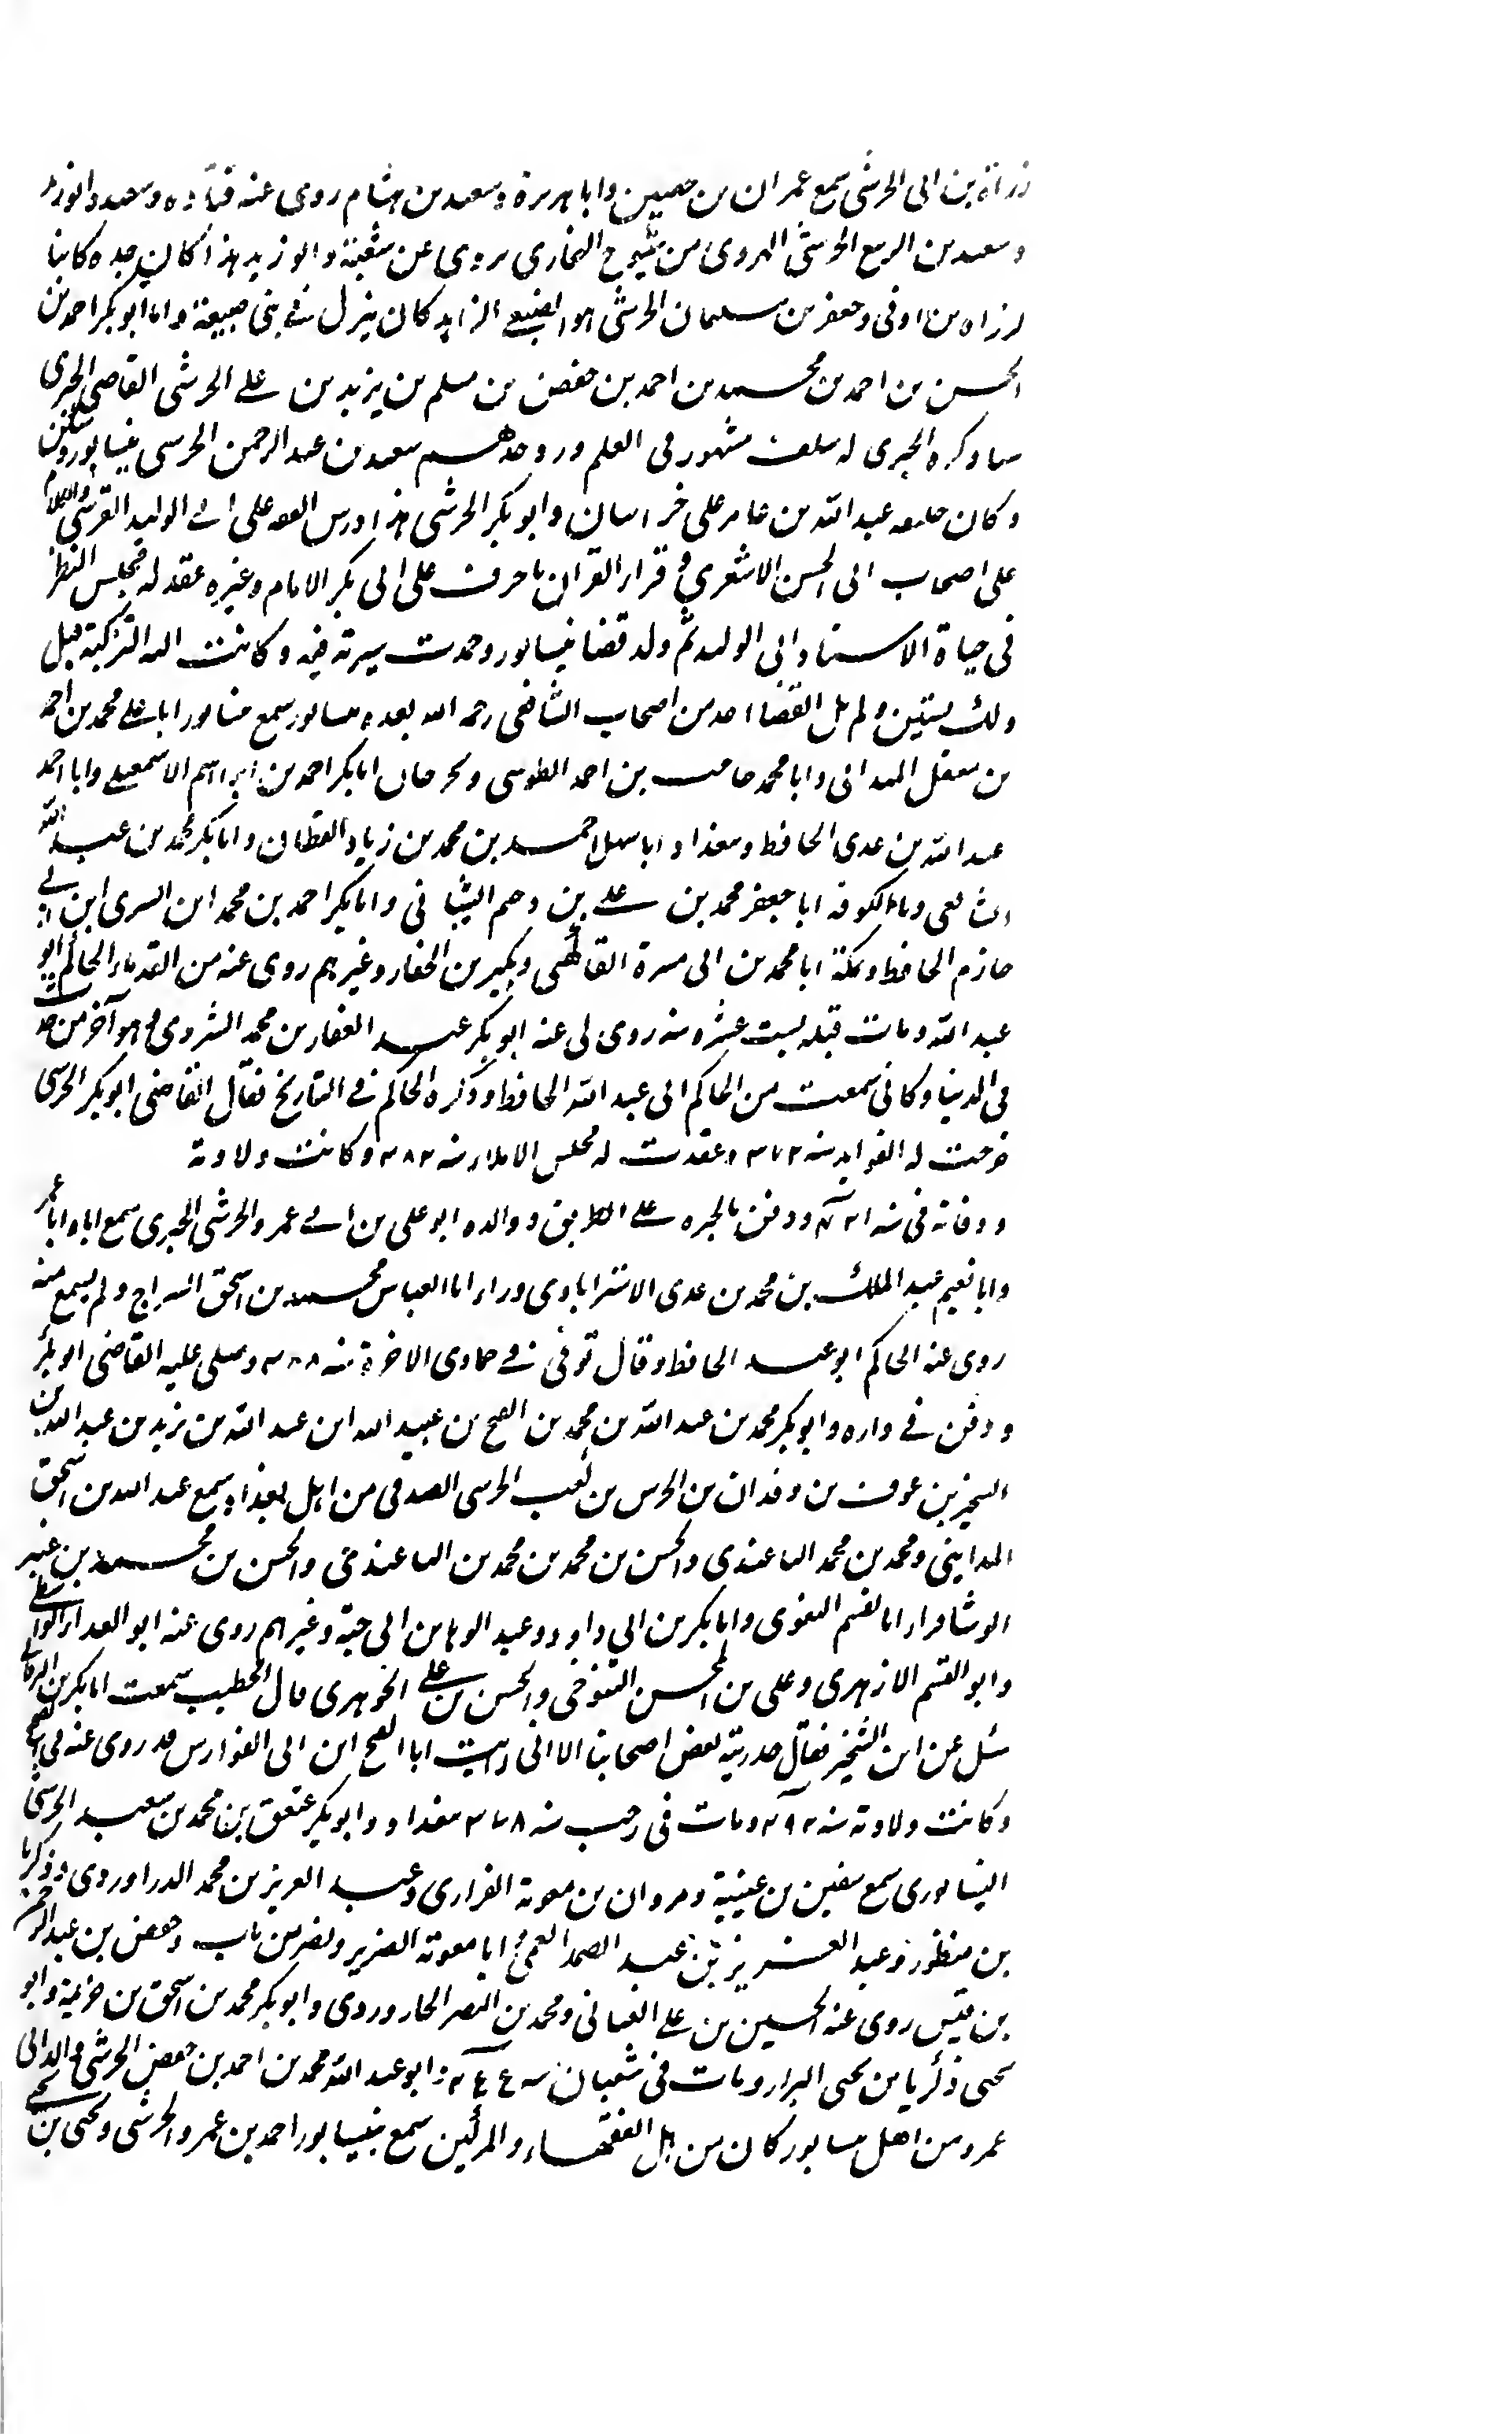 زراة بن ابى الحرشى سمع عمران بن حصين وابا هريرة وسعيد بن هشام روى عنه قتادة وسعيد وابو زيد
وسعيد بن الربيع الحرشى الهروى من شيوخ البخاري يروى عن شعبة وابو زيد هذا كان جده كاتبا
لزراه بن اوفى وجعفر بن سليمان الحرشى هو الضبعي الزاهد كان ينزل في بنى ضبيعة واما ابو بكر احمد بن
الحسن بن احمد بن محمد بن احمد بن حفص بن مسلم بن يزيد بن علي الحرشى القاضى الحيرى
سا وكره الحيرى له سلف مشهور فى العلم وروحدهم سعيد بن عبد الرحمن الحرسى نيسابور
وكان خليفه عبد الله بن عامر على خراسان وابو بكر الحرشى هذا درس الفقه على ابي الوليد القرشى والكلام
على اصحاب ابى الحسن الاشعري وقرا القران باحرف على ابى بكر الامام وغيره عقد له مجلس النظر
فى حياة الاستاد ابى الوليد ثم ولد قضا نيسابور وحمدت سيرته فيه وكانت اليه التزكية قبل
ولك بستين ولم يل القضا احد من اصحاب الشافعى رحمه الله بعده بنيسابور سمع بنيسابور ابا علي محمد بن احمد
بن معقل الميدانى وابا محمد حاجب بن احمد الطوسى وبجرجان ابا بكر احمد بن ابراهيم الاسمعيلي وابا احمد
عبد الله بن عدى الحافظ وببغداد ابا سهل احمد بن محمد بن زياد القطان وابا بكر محمد بن عبد الله
الشافعى وبالكوفه ابا جعفر محمد بن علي بن دحيم الشيبانى وابا بكر احمد بن محمد ابن السرى ابن ابي
حازم الحافظ وبمكة ابا محمد بن ابى مسرة الفاكهى وبكير بن الحفار وغيرهم روى عنه من القدماء الحاكم ابو
عبد الله ومات قبله بست عشره سنه روى لى عنه ابو بكر عبد الغفار بن محمد الشروى وهو آخر من حدث
فى الدنيا وكانى سمعت من الحاكم ابى عبد الله الحافظ وذكره الحاكم في التاريخ فقال القاضى ابو بكر الحرسى
خرجت له الفوايد سنه ٣٧٢ وعقدت له مجلس الاملاء سنه ٣٨٢ وكانت ولادته
ووفاته فى سنه ٤٢١ ودفن بالحيره على الطريق ووالده ابو علي بن ابي عمرو الحرشى الحيرى سمع اباه ابا عمرو
وابا نعيم عبد الملك بن محمد بن عدى الاسترابادى وراى ابا العباس محمد بن اسحق السراج ولم يسمع منه
روى عنه الحاكم ابو عبد الحافظ وقال توفى في جمادى الاخرة سنه ٣٨٨ وصلى عليه القاضى ابو بكر
ودفن في داره وابو بكر محمد بن عبد الله بن محمد بن الفتح بن عبيد الله ابن عبد الله بن يزيد بن عبد الله بن
الشخير بن عوف بن وقدان بن الحرس بن كعب الحرسى الصيرفى من اهل بغداد سمع عبد الله بن اسحق
المداينى ومحمد بن محمد الباغندى والحسن بن محمد بن محمد بن الباغندى والحسن بن محمد بن عنبر
الوشا وابا القسم البغوى وابا بكر بن ابي داود وعبد الوهاب بن ابى حية وغيرهم روى عنه ابو العلاء الواسطي
وابو القسم الازهرى وعلى بن المحسن التنوخى والحسن بن علي الجوهرى قال الخطيب سمعت ابا بكر البرقاني
سئل عن ابن الشخير فقال حدريه بعض اصحابنا الا انى رايت ابا الفتح ابن ابى الفوارس قد روى عنه في الصحيح
وكانت ولادته سنه ٢٩٢ ومات فى رجب سنه ٣٧٨ ببغداد وابو بكر عتيق بن محمد بن سعيد الحرشى
النيسابورى سمع سفين بن عيينة ومروان بن معوية الفزارى وعبد العزيز بن محمد الدراوردى وزكريا
بن منظور وعبد العزيز بن عبد الصمد العمى وابا معوية الضرير ونصر بن باب وحفص بن عبد الرحمن
بن قيس روى عنه الحسين بن علي القبانى ومحمد بن النصر الجارودى وابو بكر محمد بن اسحق بن خزيمة وابو
يحيى زكريا بن يحيى البزار ومات فى شعبان سنه وابو عبد الله محمد بن احمد بن حفص الحرشى والد ابى
عمرو من اهل نيسابور كان من اهل الفقهاء والمزكين سمع بنيسابور احمد بن عمرو الحرشى ويحيى بن يحيى